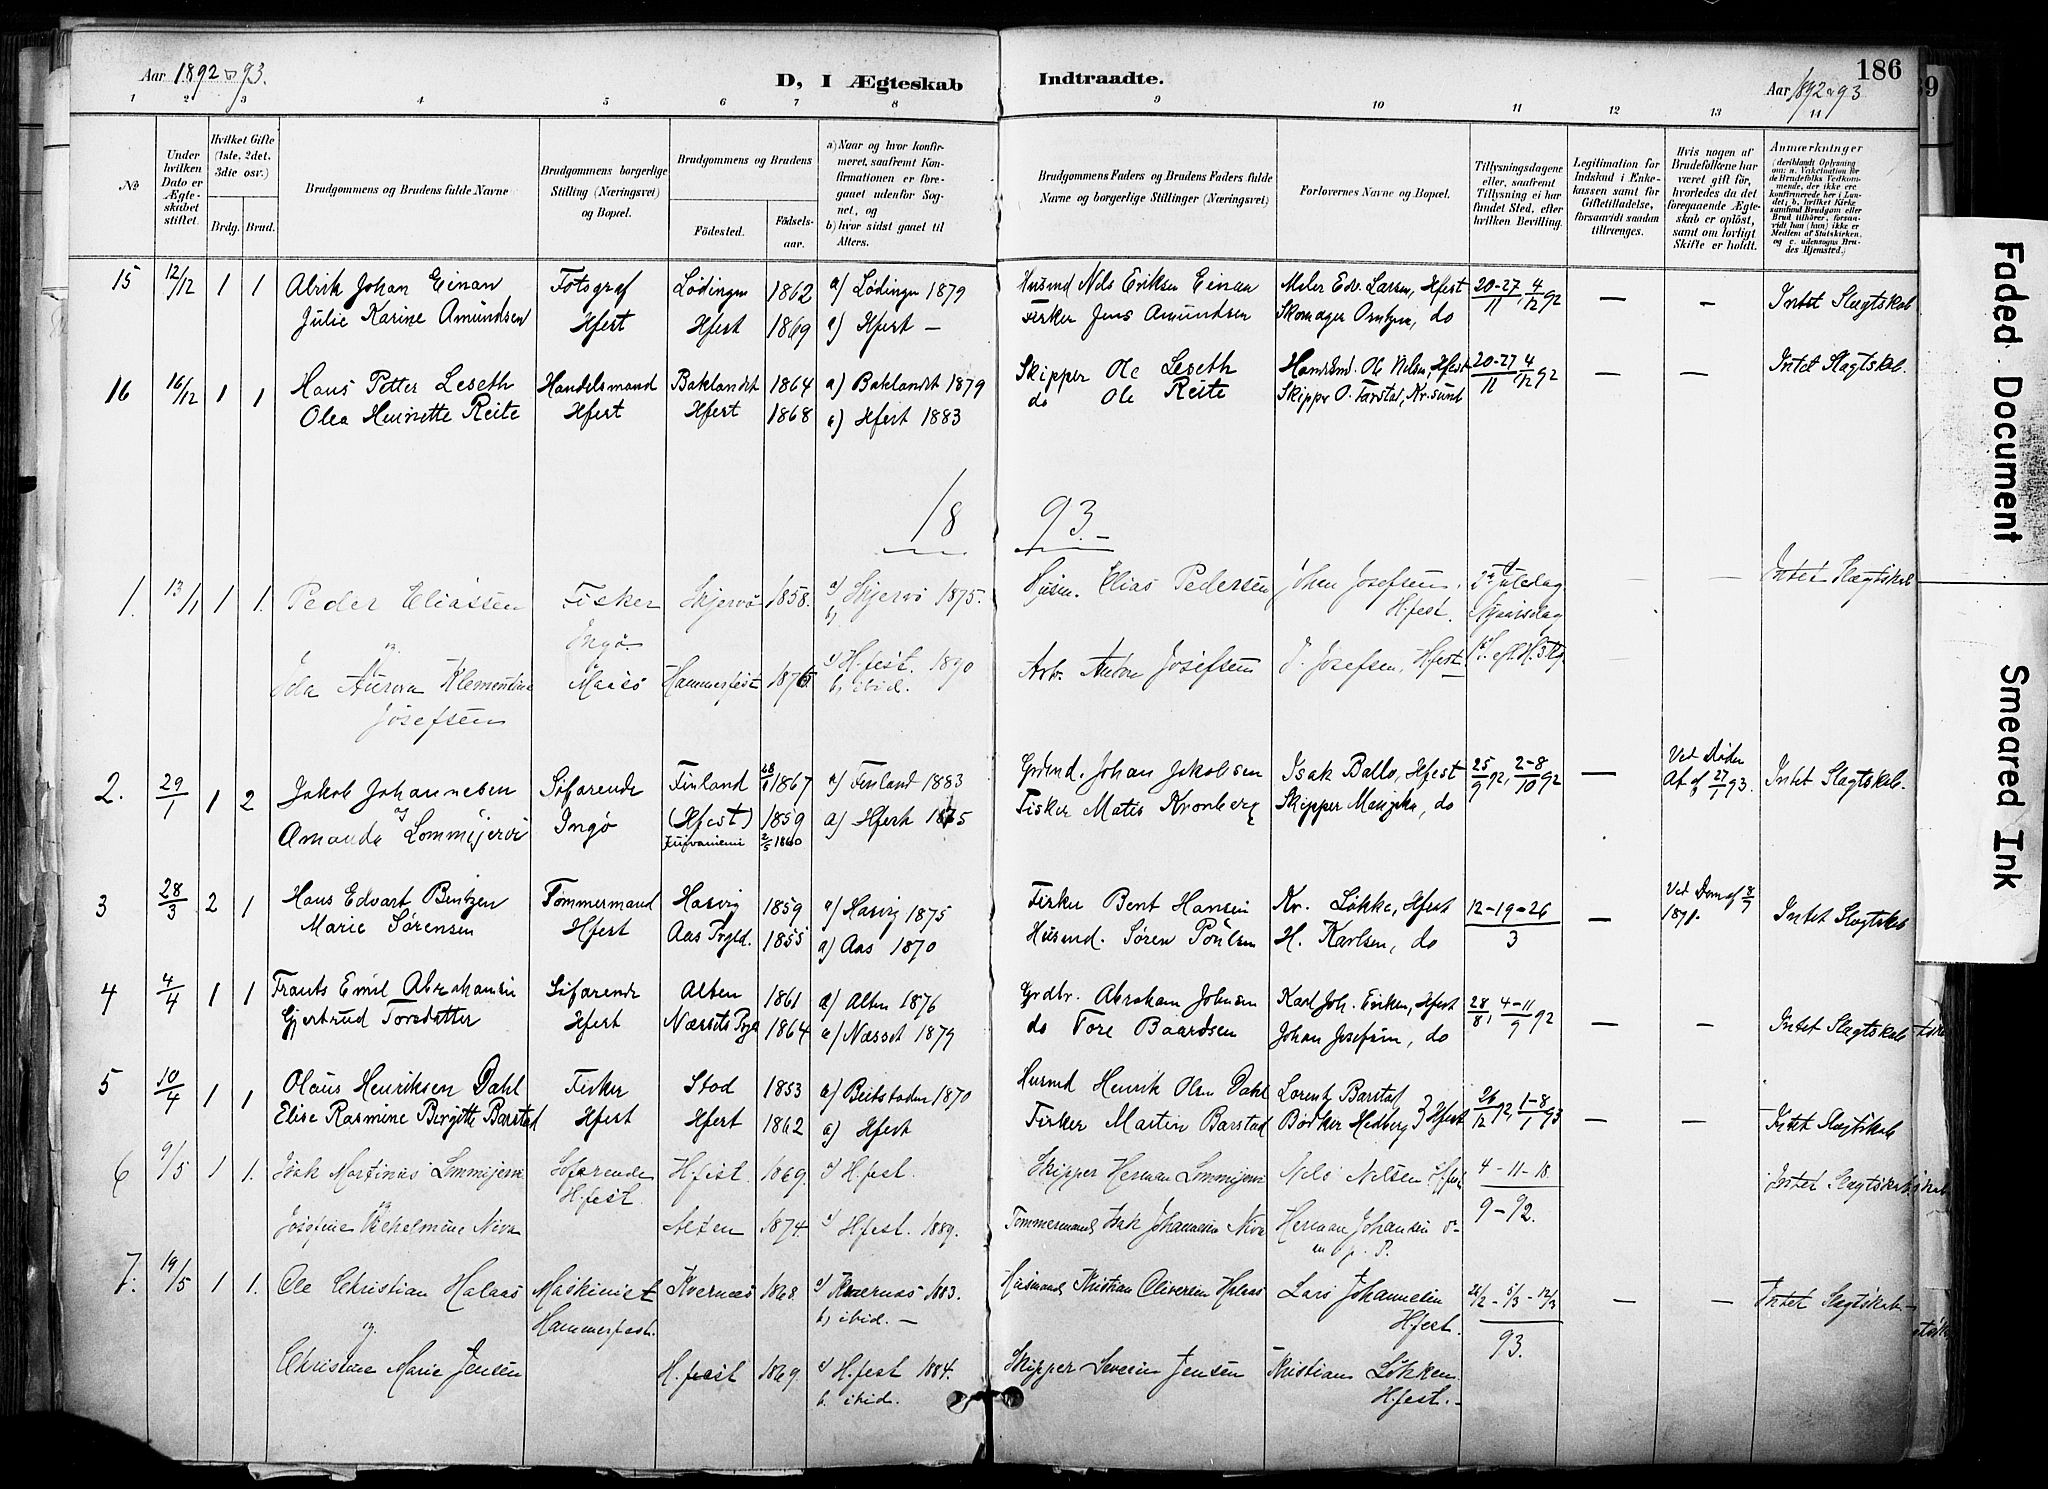 Aar 1892-93.
D, I Ægteskab Indtraadte.
Aar 1892-93
186
1 2 3 4 5 6 7 8 9 10 11 12 13 14
No
Under hvilken Dato er Ægteskabet stiftet.
Hvilket Gifte (1ste, 2det, 3die osv.)
Brdg. Brud.
Brudgommens og Brudens fulde Navne
Brudgommens borgerlige Stilling (Næringsvei) og Bopæl.
Brudgommens og Brudens
Fødested.
Fødselsaar.
a) Naar og hvor konfirmeret, saafremt Konfirmationen er foregaaet udenfor Sognet, og
b) hvor sidst gaaet til Alters.
Brudgommens Faders og Brudens Faders fulde Navne og borgerlige Stillinger (Næringsvei)
Forlovernes Navne og Bopæl.
Tillysningsdagene eller, saafremt Tillysning ei har fundet Sted, efter hvilken Bevilling.
Legitimation for Indskud i Enkekassen samt for Giftetilladelse, forsaavidt saadan tiltrænges.
Hvis nogen af Brudefolkene har været gift før, hvorledes da det foregaaende Ægteskab er opløst, samt om lovligt Skifte er holdt.
Anmærkninger
15 12/12 1 1 Alrik Johan Einan Fotograf Lødingen 1862 a) Lødingen 1879 Husmd Nils Eriksen Einan Maler Edv. Larsen, Hfest 20-27/11, 4/12 92 — — Intet Slægtskab
Julie Karine Amundsen Hfest Hfest 1869 a) Hfest — Fisker Jens Amundsen Skomager Arntzen, do
16 16/12 1 1 Hans Petter Leseth Handelsmand Baklandet 1864 a) Baklandet 1879 Skipper Ole Leseth Handlsmd. Ole Nilsen, Hfest 20-27/11 4/12 92 — — Intet Slægtskab.
Olea Henriette Reite Hfest Hfest 1868 a) Hfest 1883 do Ole Reite Skipper O. Farstad, Kr.sund
18 93.-
1. 13/1 1 1. Peder Eliassen Fisker Skjervø 1858. a) Skjervø 1875. Elias Pedersen Josefsen, Hfest.
Ingø
Ida Aurora Klementine Maasø Hammerfest 1876 a) H.fest. 1890 b. ibid. Arb. Anton Josefsen J. Josefsen, Hfest
Josefsen
Intet Slægtskab
2. 29/1 1 2 Jakob Johannesen Søfarende Finland 28/1 1867 a) Finland 1883 Grdmd. Johan Jakobsen Isak Ballo, Hfest 25/9 92, 2-8/10 92 — Ved Døden Intet Slægtskab.
og Amanda Lommijervi Ingø (Hfest) 1859 a) Hfest 1875 Fisker Mates Kronberg Skipper do
2/5 1860
3 28/3 2 1 Hans Edvart Bentzen Tømmermand Hasvig 1859 a) Hasvig 1875 Fisker Bent Hansen Kr. Løkke, Hfest 12-19-26/3 — Ved Dom af Intet Slægtskab
Marie Sørensen Hfest Aas Prgld. 1855 a) Aas 1870 Husmd. Søren Poulsen H. Karlsen, do
4 4/4 1 1 Frants Emil Abrahamsen Søfarende Alten 1861 a) Alten 1876 Grdbr. Abraham Johnsen Karl Joh. Eriksen, Hfest 28/8, 4-11/9 92 — — Intet Slægtskab
Gjertrud Toresdatter Hfest Næssets Prgld 1864 a) Næsset 1879 do Tore Baardsen Johan Josefsen, do
5 10/4 1 1 Olaus Henriksen Dahl Fisker Stod 1853 a) Beitstaden 1870 Husmd Henrik Olsen Dahl Lorentz Barstad 26/12 92, 1-8/1 93 — — Intet Slægtskab
Elise Rasmine Birgitte Barstad Hfest Hfest 1862 a) Hfest Fisker Martin Barstad Bødker Hedberg } Hfest
6 9/5 1 1. Isak Martinus Lommijervi Søfarende H.fest. 1869. a) H.fest. Skipper Herman Lommijervi Nels Nelsen Hfest 4-11-18/9-92. Intet Slægtskab
H.fest.
Josefine Vilhelmine Niva Alten 1874. a) Hfest. 1889. Tømmermand Isak Johannesen Niva Herman Johansen
7. 19/5 1 1. Ole Christian Halaas Maskinist Kvernæs 1868. a) Kvernæs 1883. b) ibid. — Husmand Kristian Oliversen Halaas Lars Johannesen Hfest. 26/2-5/3-12/3 93. — — Intet Slægtskab
og Hammerfest.
Christine Marie Jensen H.fest 1869. a) H.fest 1884. b. ibid. Skipper Severin Jensen Kristian Løkken Hfest.-
Faded Document
Smeared Ink